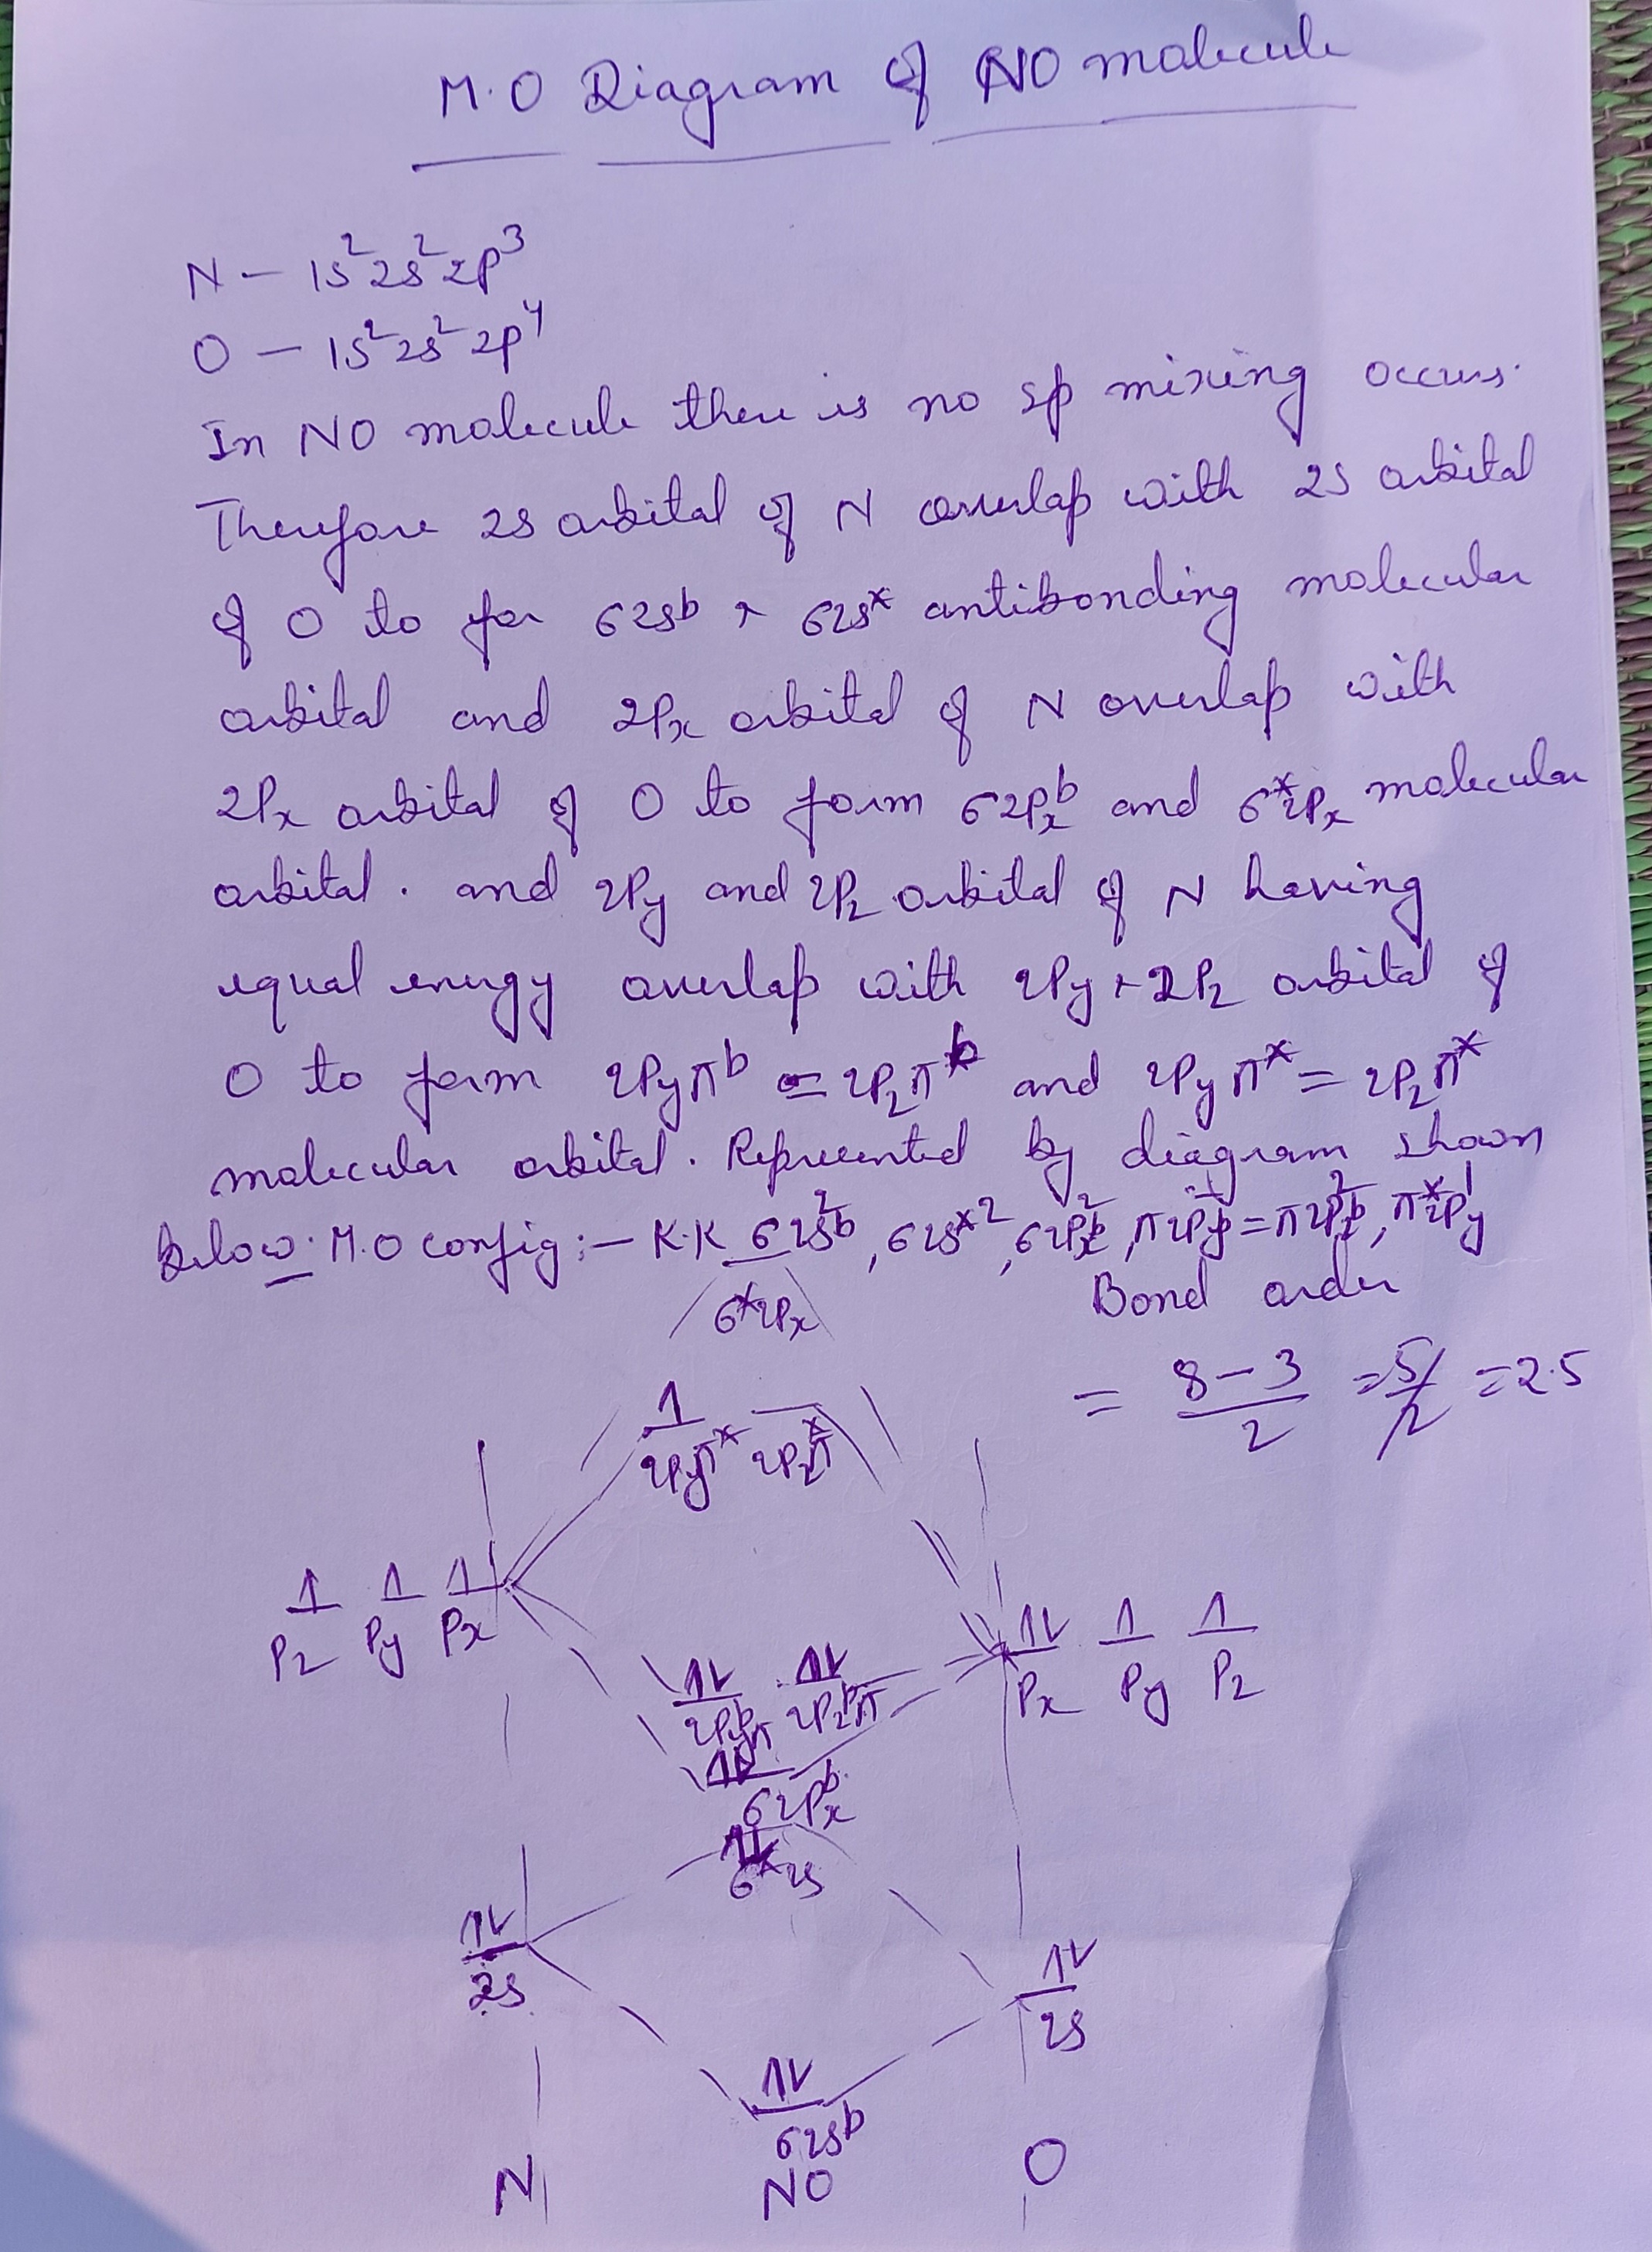 M.O Diagram of NO molecule
N – 1s²2s²2p³
O – 1s²2s²2p⁴
In NO molecule there is no sp mixing occurs.
Therefore 2s orbital of N overlap with 2s orbital
of O to for σ2sᵇ + σ2s* antibonding molecular
orbital and 2Px orbital of N overlap with
2Px orbital of O to form σ2Pxᵇ and σ*2Px molecular
orbital. and 2Py and 2Pz orbital of N having
equal energy overlap with 2Py + 2Pz orbital of
O to form 2Pyπᵇ = 2Pzπᵇ and 2Pyπ* = 2Pzπ*
molecular orbital. Represented by diagram shown
below. M.O config:– K.K σ2sᵇ², σ2s*², σ2Pxᵇ², π2Pyᵇ² = π2Pzᵇ², π*2Py¹
Bond order
σ*2Px
= 8–3/2 = 5/2 = 2.5
1
2Pyπ* 2Pzπ*
1 1 1
Pz Py Px
1L 1 1
Px Py Pz
1L 1L
2Pyᵇπ 2Pzᵇπ
1L
σ2Pxᵇ
1L
σ*2s
1L
2s
1L
2s
1L
σ2sᵇ
N NO O